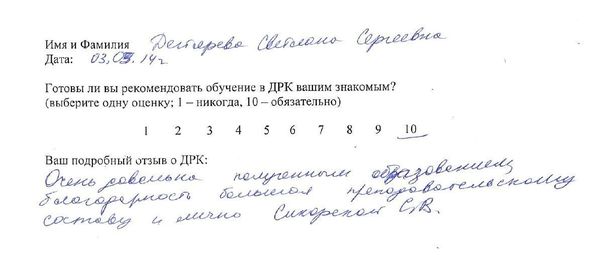 Имя и Фамилия Дегтярева Светлана Сергеевна
Дата: 03.03.14г
Готовы ли вы рекомендовать обучение в ДРК вашим знакомым?
(выберите одну оценку; 1 – никогда, 10 – обязательно)
1 2 3 4 5 6 7 8 9 10
Ваш подробный отзыв о ДРК:
Очень довольна полученным образованием,
благодарность большая преподавательскому
составу и лично Сикорской С.В.